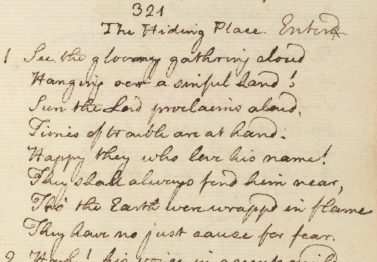 321
The Hiding Place. Enterd
1 See the gloomy gath'ring cloud
Hanging oer a sinful land!
Sure the Lord proclaims aloud,
Times of trouble are at hand.
Happy they who love his name!
They shall always find him near,
Tho' the Earth were wrapp'd in flame
They have no just cause for fear.
2 Hark! his voice in